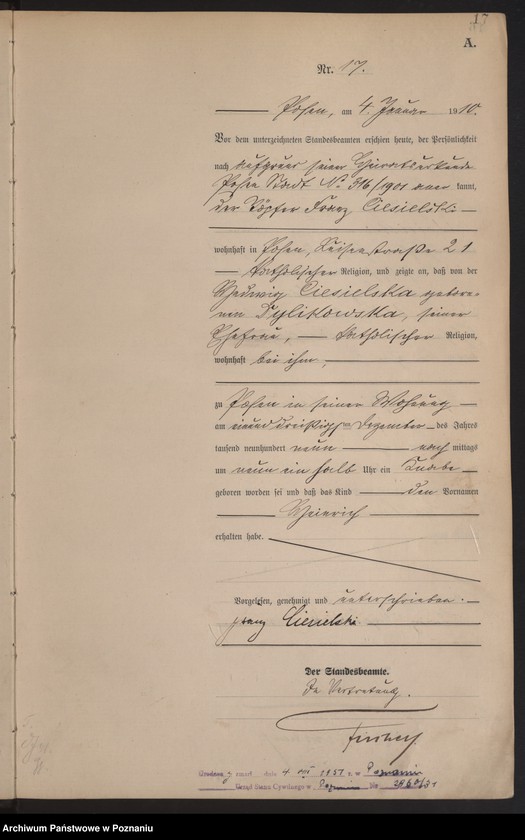 17
A.
Nr. 17.
Posen, am 4. Januar 1910.
Vor dem unterzeichneten Standesbeamten erschien heute, der Persönlichkeit
nach aufgrund seiner Heiratsurkunde
Posen Stadt No 316/1901 aner kannt,
der Töpfer Franz Ciesielski
wohnhaft in Posen, 21
katholischer Religion, und zeigte an, daß von der
Hedwig Ciesielska gebore-
nen Tylikowska, seiner
Ehefrau, katholischer Religion,
wohnhaft bei ihm,
zu Posen in seiner Wohnung
am einunddreißigsten Dezember des Jahres
tausend neunhundert neun nach mittags
um neun ein halb Uhr ein Knabe
geboren worden sei und daß das Kind den Vornamen
Heinrich
erhalten habe.
Vorgelesen, genehmigt und unterschrieben.
Franz Ciesielski
Der Standesbeamte.
In Vertretung.
dnia 4 1951 r. w Poznaniu
Urząd Stanu Cywilnego w Poznaniu Nr
Archiwum Państwowe w Poznaniu